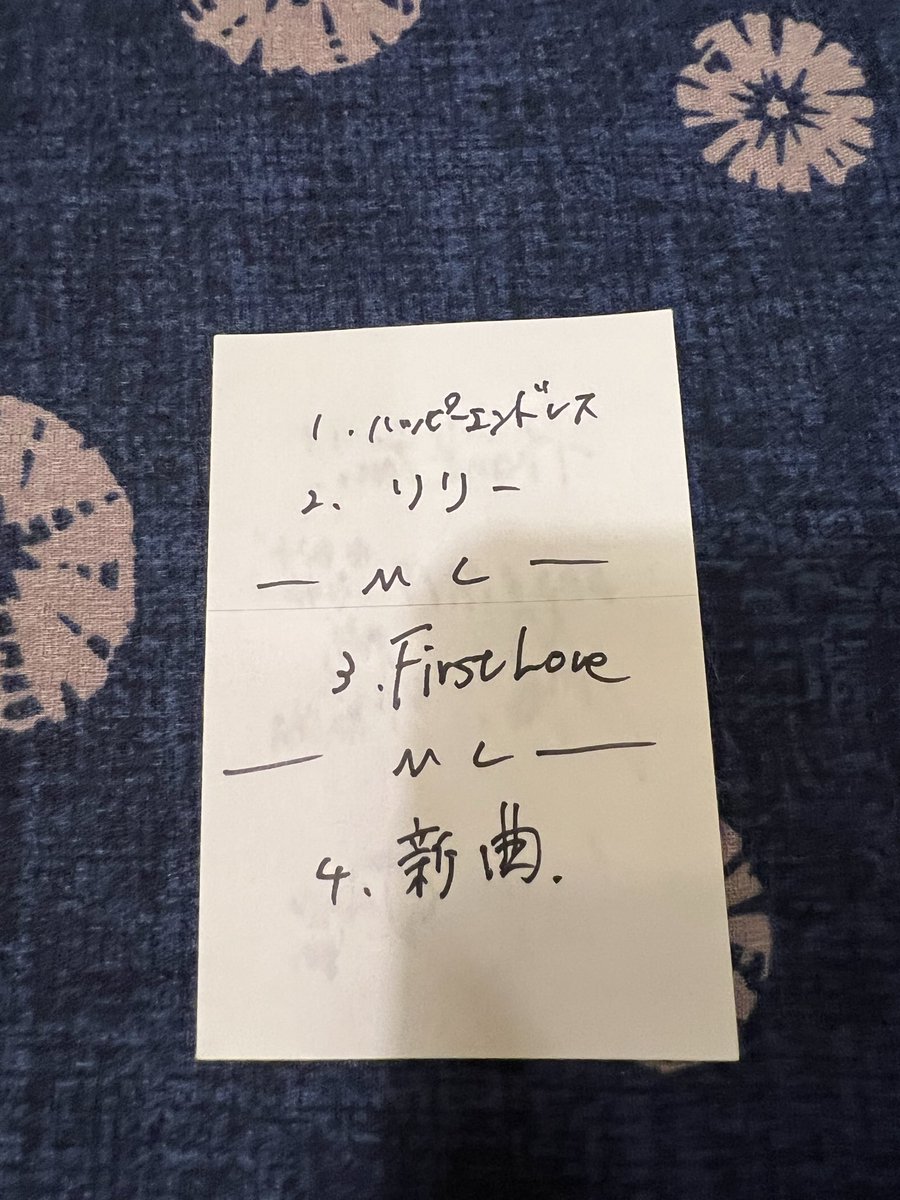 1. ハッピーエンドレス
2. リリー
― MC ―
3. First Love
― MC ―
4. 新曲.